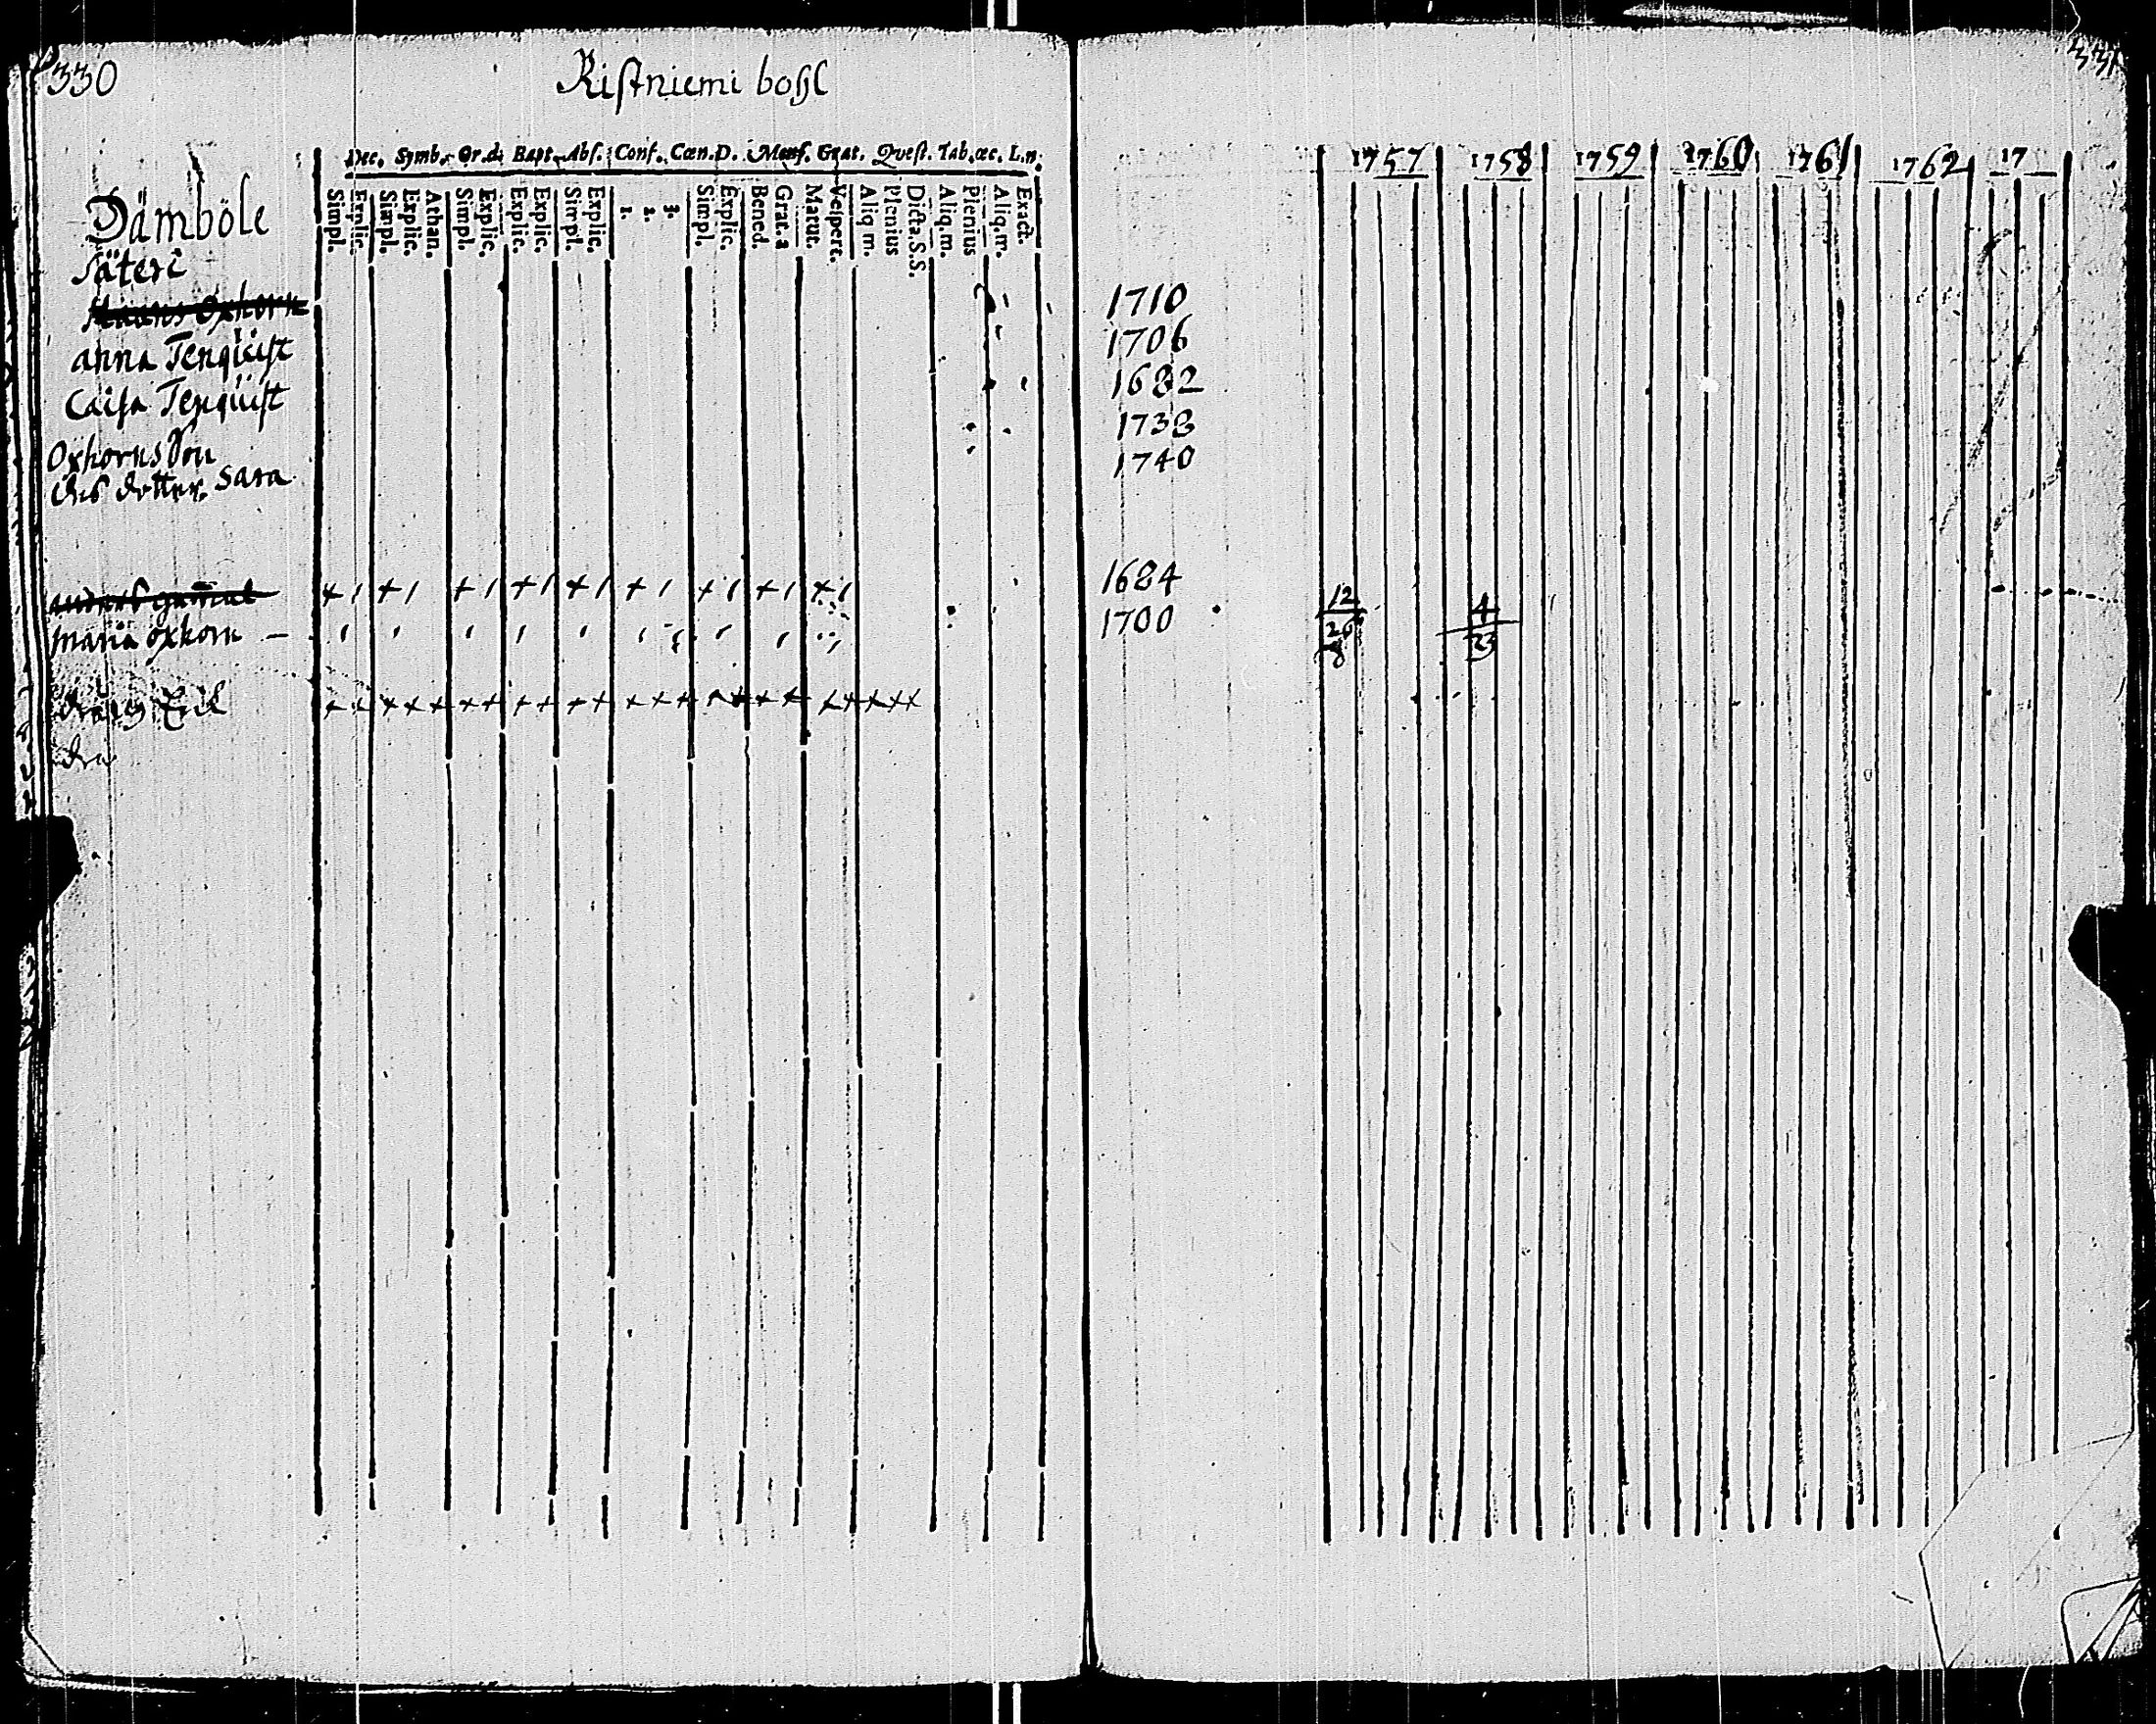 330
Ristniemi bohl
331
Dec. Symb. Or.d. Bapt. Abs. Conf. Cœn.D. Mens. Grat. Qvest. Tab.œc. L.n.
Simpl.
Explic.
Simpl.
Explic.
Athan.
Simpl.
Explic.
Explic.
Explic.
Simpl.
Explic.
1.
2.
3.
Simpl.
Explic.
Bened.
Grat. a
Matut.
Vespert.
Aliq m.
Plenius
Dicta.S.S.
Aliq.m.
Plenius
Aliq.m.
Exact.
1757 1758 1759 1760 1761 1762 17
Dämböle
Säteri
Oxhorn 1710
anna Tenquist 1706
Caisa Tenquist 1682
Oxhorns Son 1738
dess dotter. Sara 1740
1684
maria oxhorn – 1700
12
26
8
4
23